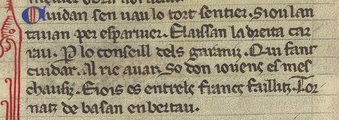 Cuidan sen uan lo tort sentier. Si on lan
tauan per esparuier. E laissan la dreita car
rau. P lo conseill dels garanz. Q ui fant
cuidar. Al ric auar. So don iouens es mes
chautz. E iois es entrels francs faillitz. Tor
natz de basan en bertau.